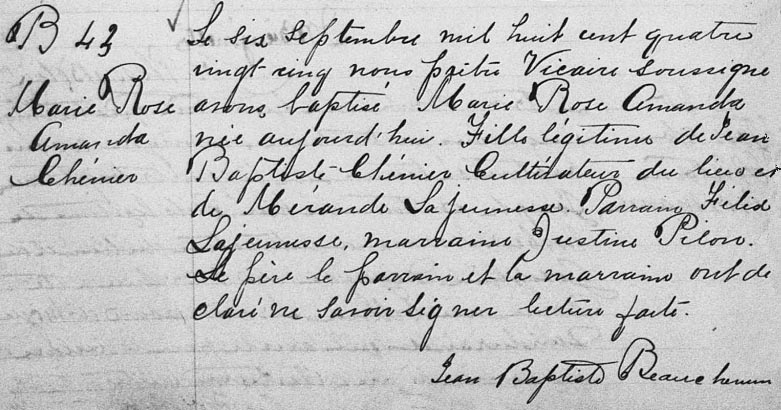 B 43
Marie Rose
Amanda
Chénier
Le six Septembre mil huit cent quatre
vingt cinq nous prêtre Vicaire soussigné
avons baptisé Marie Rose Amanda
née aujourd'hui. Fille légitime de Jean
Baptiste Chénier Cultivateur du lieu et
de Mérande Lajeunesse. Parrain Félix
Lajeunesse, marraine Justine Pilon.
Le père le parrain et la marraine ont dé
claré ne savoir signer lecture faite.
Jean Baptiste Beauchemin